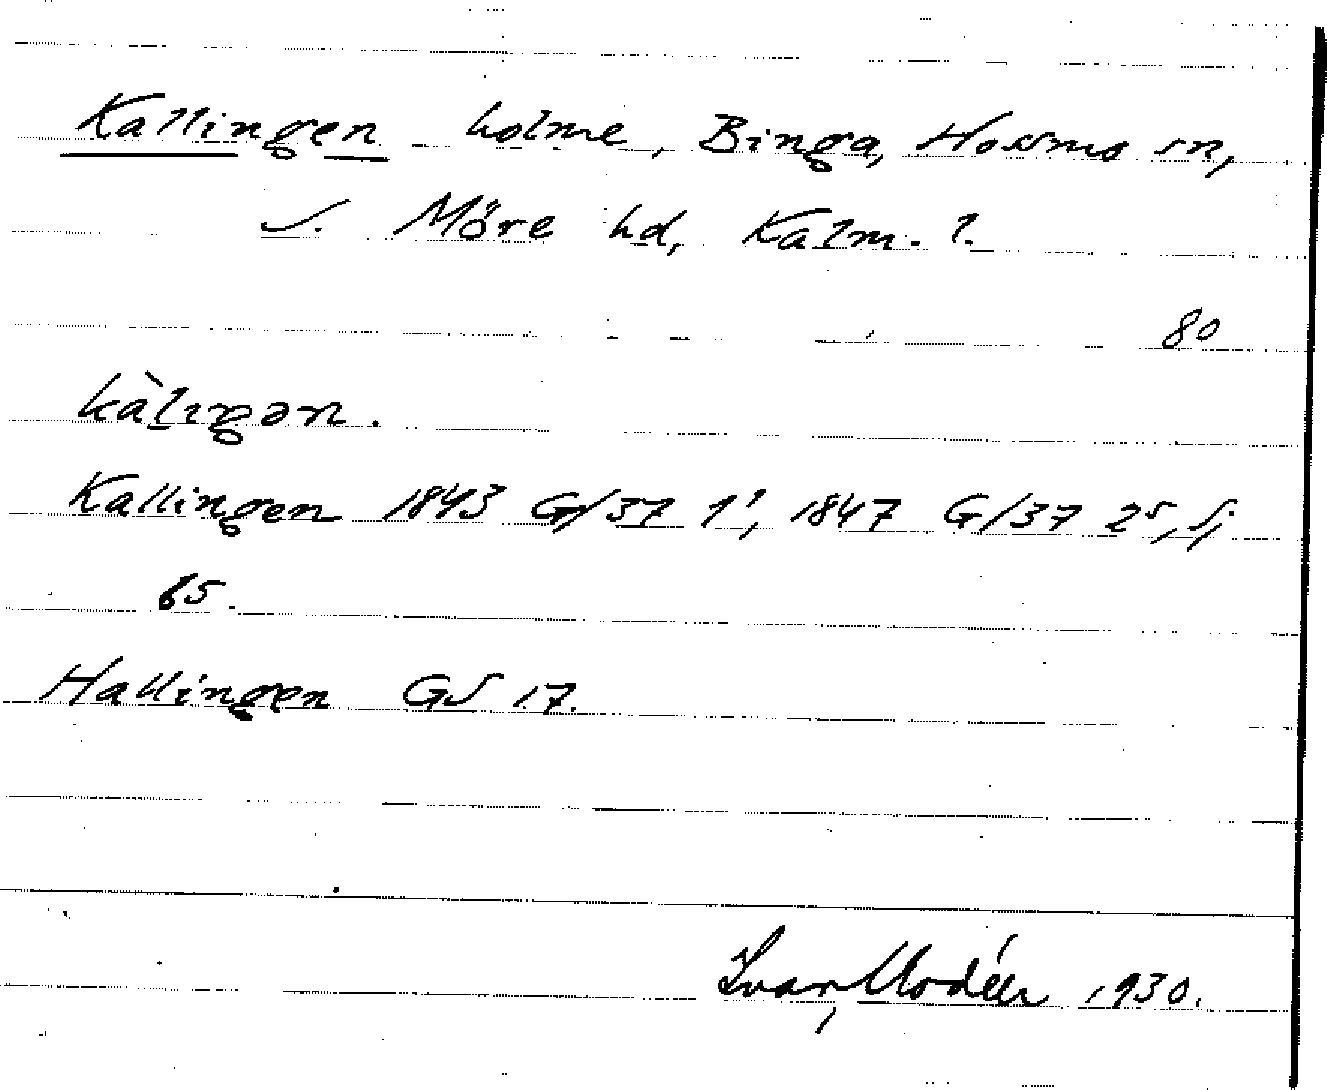 Kallingen holme, Binga, Hossmo sn,
S. Möre hd, Kalm. l.
80
kàlıŋən.
Kallingen 1843 G/37 1¹, 1847 G/37 2⁵, Sj
65.
Hallingen GS 17.
Ivar Modéer 1930.